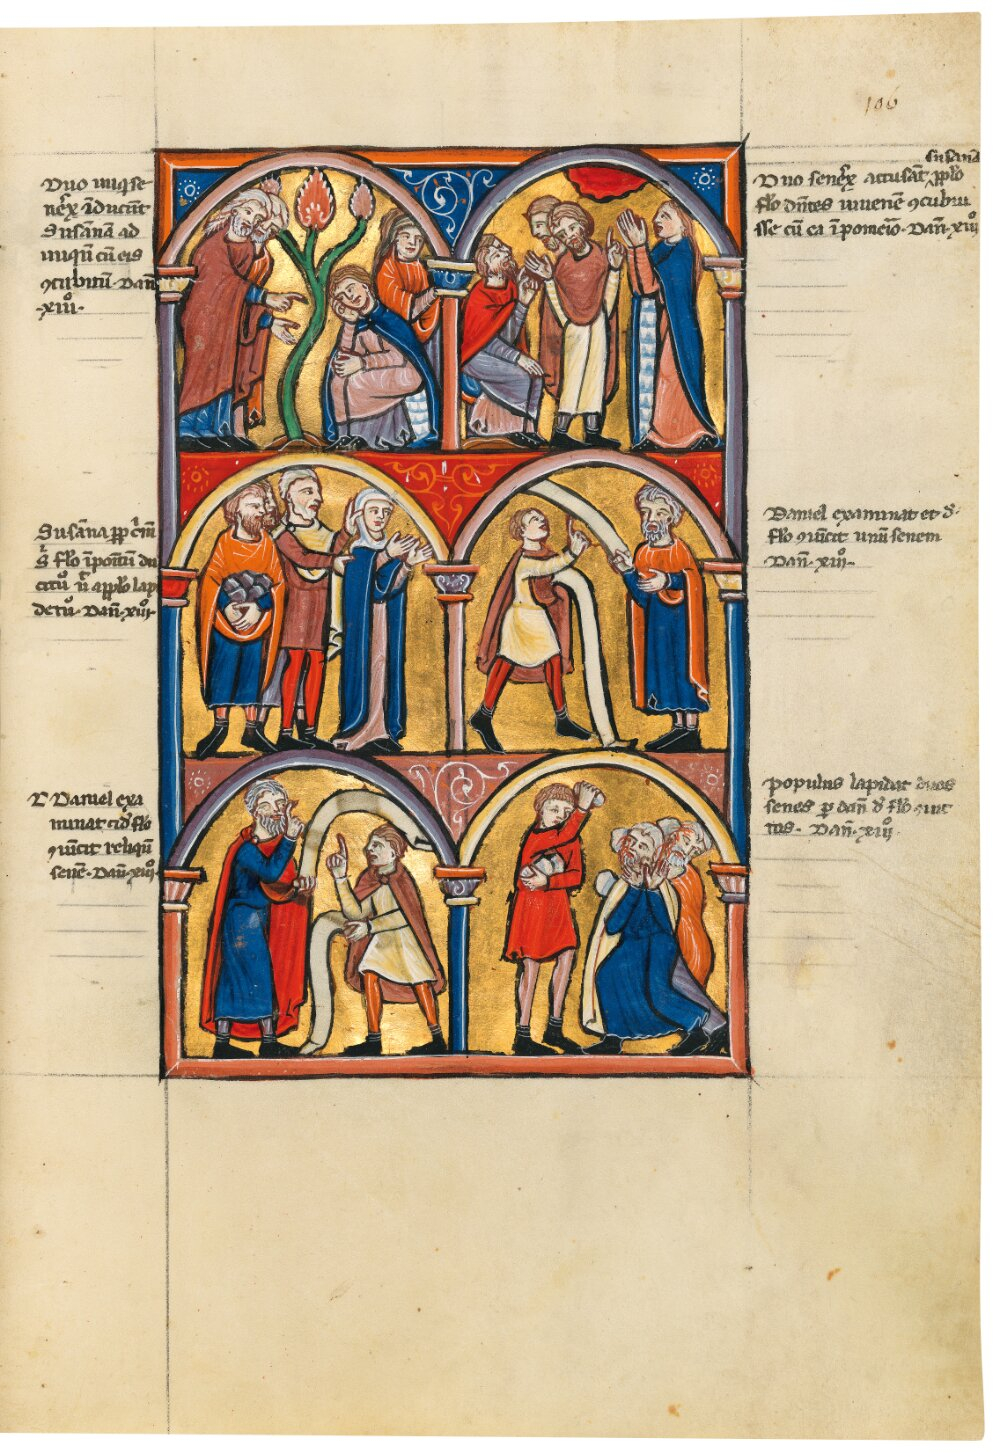 106
Duo iniq; se-
nes īducūt
Susānā ad
iniquū cū eis
ɔcubitū. Dan̄
.xiii.
susanā
Duo senes accusāt pplo
flo dn̄tes iuvenē ɔcubu
isse cū ea ī pomeīo. Dan̄. xiii
Susāna
s̄ flo ī ponit̄ du
citū lap
detū. Dan̄. xiii.
Daniel examinat et d̄
flo ɔuīcit unū senem
Dan̄. xiii.
Daniel exa
minat d̄ flo
ɔuīcit reliqū
senē. Dan̄. xiii.
populus lapidat duos
senes p dan̄ d̄ flo ɔuic
tos. Dan̄. xiii.